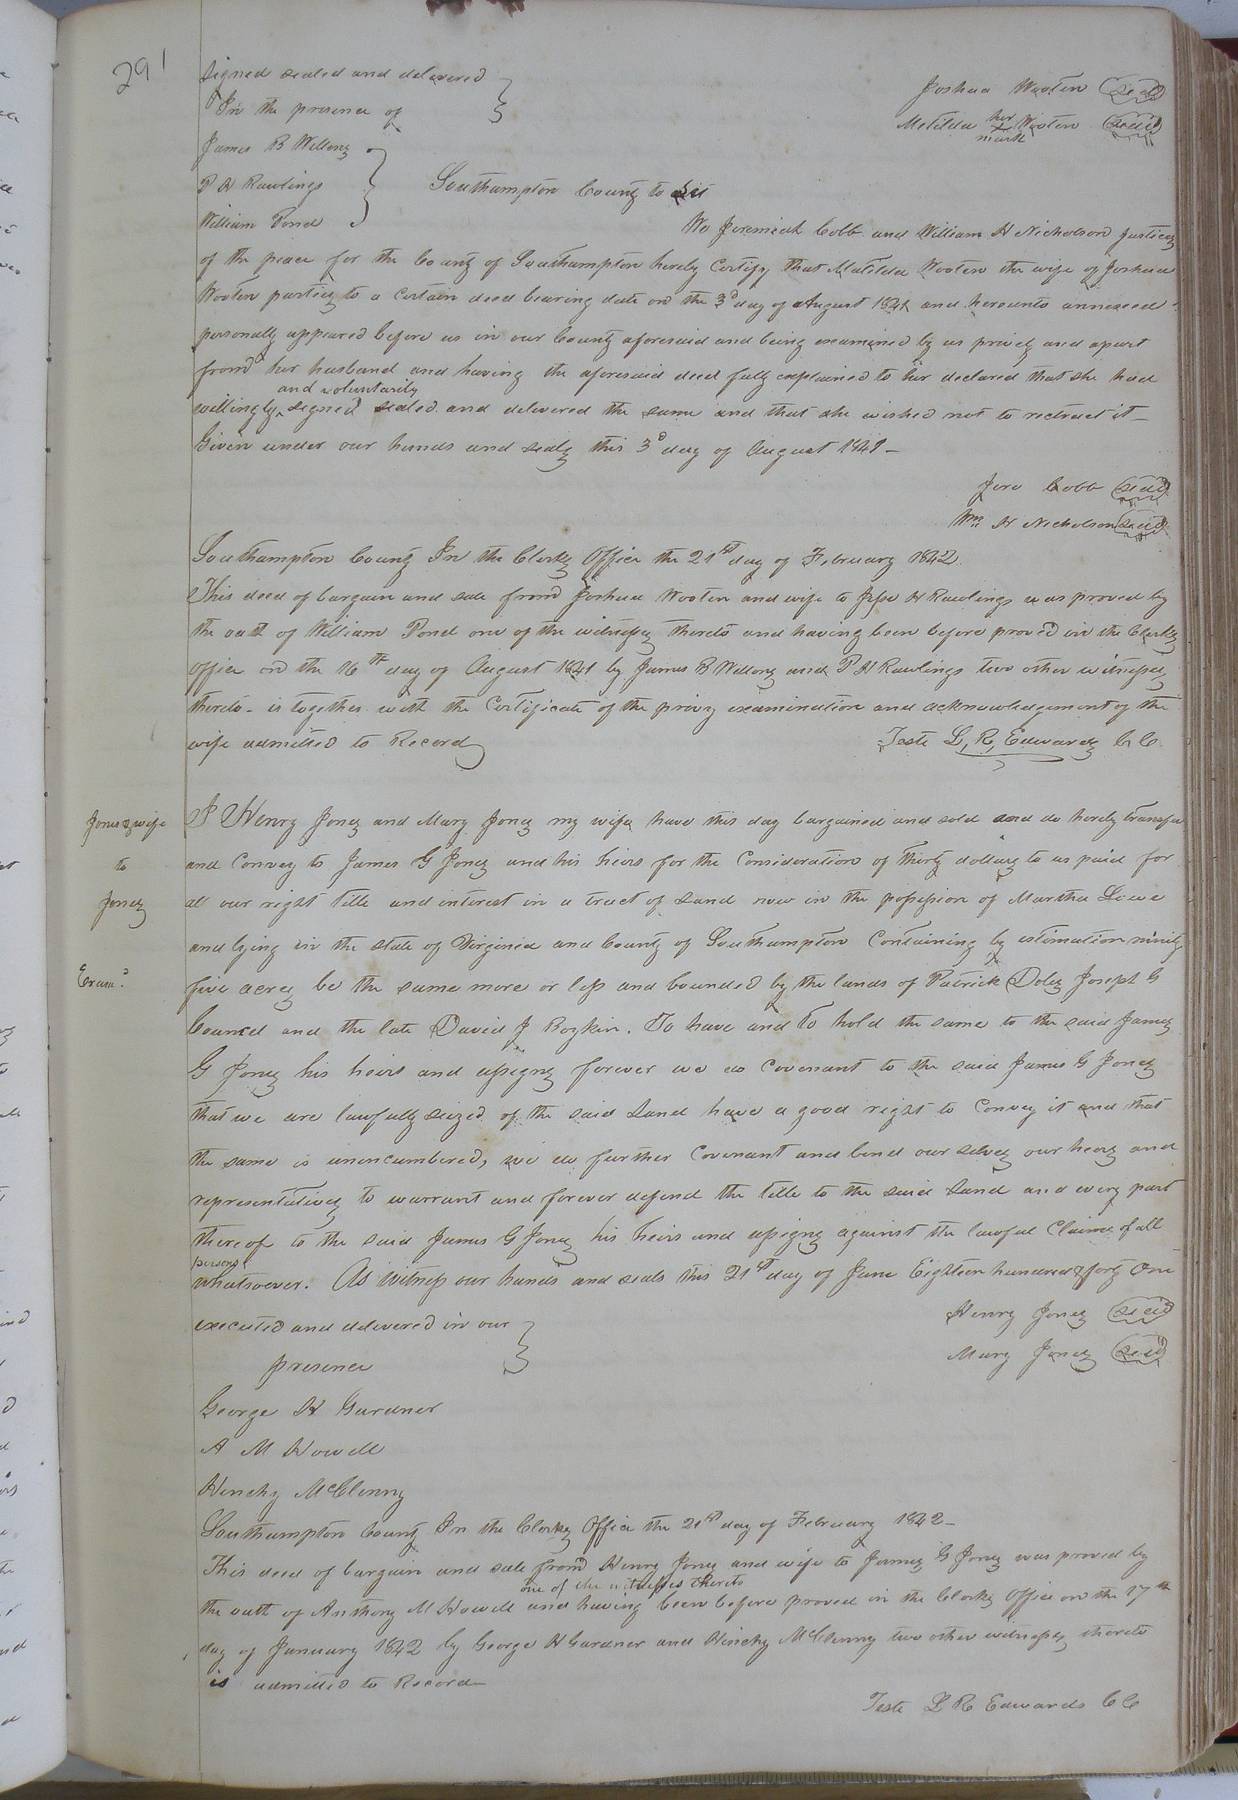 291
Signed sealed and delivered
In the presence of
Joshua Wooten (Seal)
Matilda her x mark Wooten (Seal)
James B Wellony
P H Rawlings
William Pond
Southampton County to wit
We Jeremiah Cobb and William H Nicholson Justices
of the peace for the County of Southampton hereby Certify that Matilda Wooten the wife of Joshua
Wooten parties to a Certain deed bearing date on the 3d day of August 1841 and hereunto annexed
personally appeared before us in our County aforesaid and being examined by us privily and apart
from her husband and having the aforesaid deed fully explained to her declared that she had
willingly and voluntarily signed sealed and delivered the same and that she wished not to retract it -
Given under our hands and seals this 3d day of August 1841 -
Jere Cobb (Seal)
Wm H Nicholson (Seal)
Southampton County In the Clerks Office the 21st day of February 1842.
This deed of bargain and sale from Joshua Wooten and wife to Jesse H Rawlings was proved by
the oath of William Pond one of the witnesses thereto and having been before proved in the Clerks
Office on the 16th day of August 1841 by James B Wellony and P H Rawlings two other witnesses
thereto - is together with the Certificate of the privy examination and acknowledgement of the
wife admitted to Record
Teste L. R. Edwards CC
Jones & wife
to
Jones
Exam.d
I Henry Jones and Mary Jones my wife have this day bargained and sold and do hereby transfer
and Convey to James G Jones and his heirs for the Consideration of thirty dollars to us paid for
all our right title and interest in a tract of Land now in the possession of Martha Lowe
and lying in the state of Virginia and County of Southampton Containing by estimation ninety
five acres be the same more or less and bounded by the lands of Patrick Doles Joseph G
Council and the late David J Boykin. To have and To hold the same to the said James
G Jones his heirs and assigns forever we do Covenant to the said James G Jones
that we are lawfully seized of the said Land have a good right to Convey it and that
the same is unencumbered, we do further Covenant and bind our selves our heirs and
representatives to warrant and forever defend the title to the said Land and every part
thereof to the said James G Jones his heirs and assigns against the lawful Claims of all
persons whatsoever. As witness our hands and seals this 21st day of June Eighteen hundred & forty One
executed and delivered in our
presence
Henry Jones (Seal)
Mary Jones (Seal)
George H Gardner
A M Howell
Hinchy McClenny
Southampton County In the Clerks Office the 21st day of February 1842 -
This deed of bargain and sale from Henry Jones and wife to James G Jones was proved by
the oath of Anthony M Howell one of the witnesses thereto and having been before proved in the Clerks Office on the 17th
day of January 1842 by George H Gardner and Hinchy McClenny two other witnesses thereto
is admitted to Record -
Teste L R Edwards CC